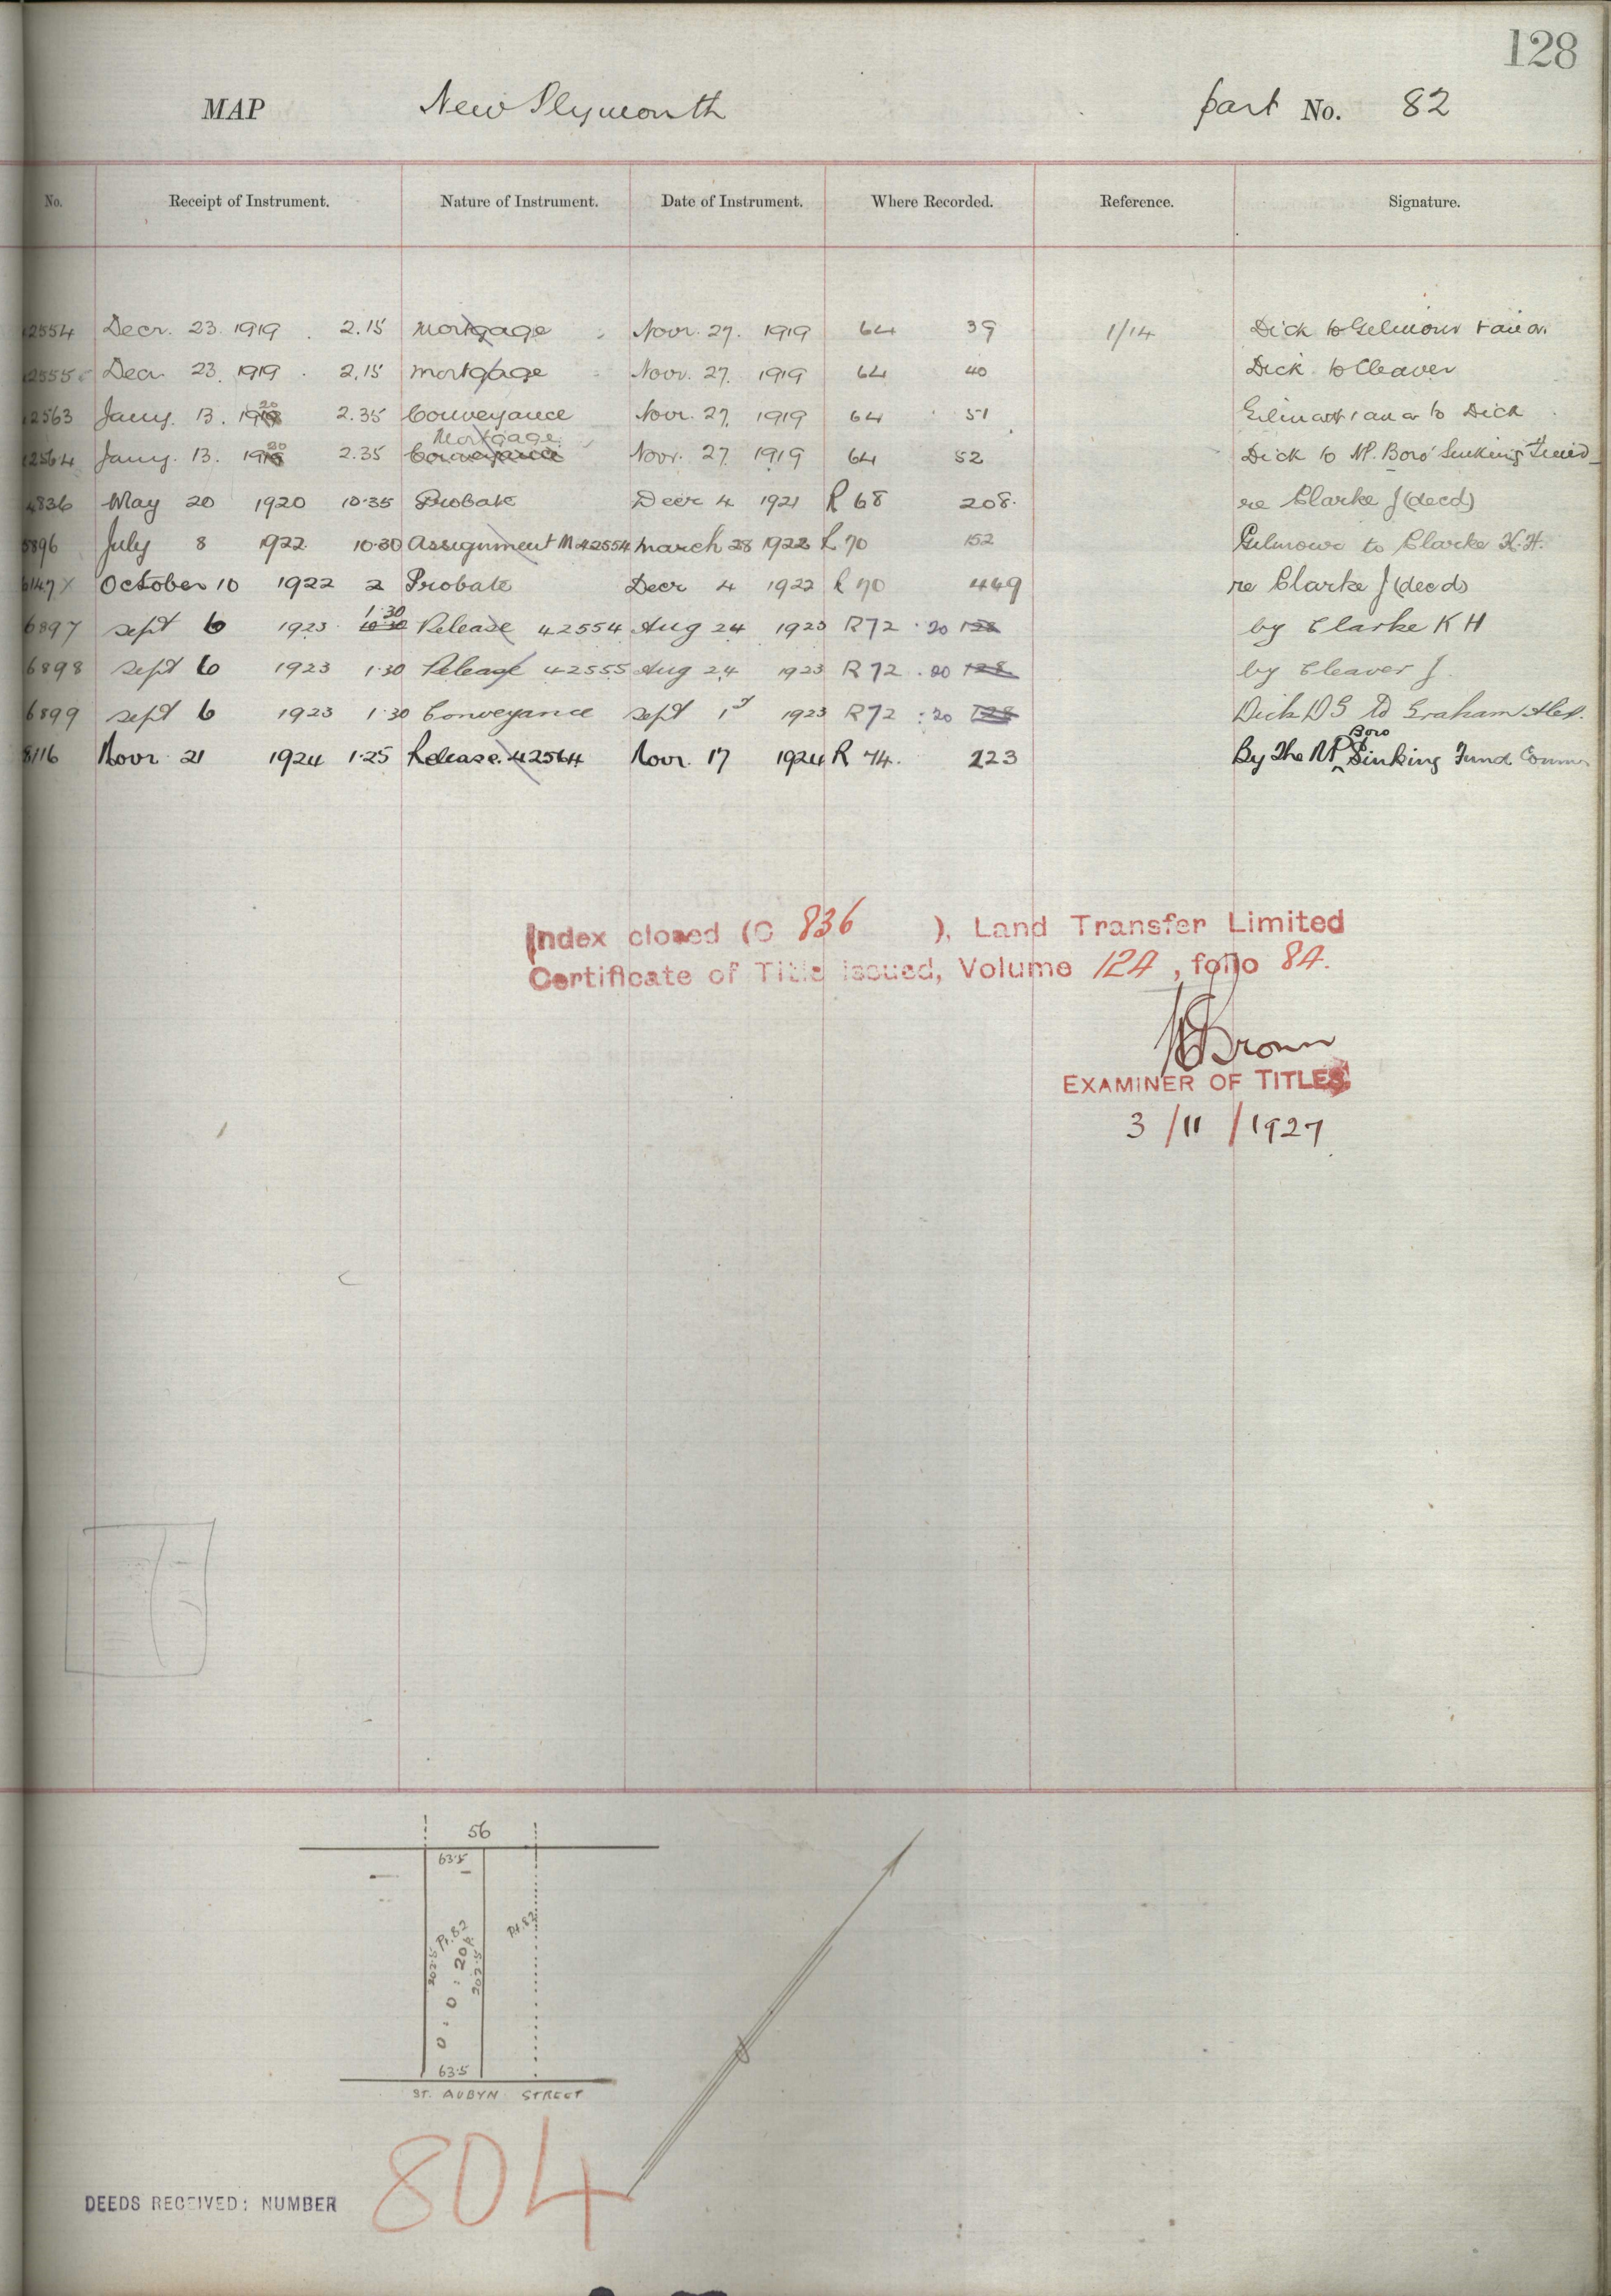 128
MAP New Plymouth part No. 82
No. Receipt of Instrument. Nature of Instrument. Date of Instrument. Where Recorded. Reference. Signature.
2554 Decr. 23. 1919 . 2.15 Mortgage Novr. 27. 1919 64 39 1/14 Dick to Gilmour & anor.
2555 Decr 23. 1919 . 2.15 Mortgage Novr. 27. 1919 64 40 Dick to Cleaver
2563 Jany. 13. 1920 2.35 Conveyance Novr. 27. 1919 64 51 Gilmour & anor to Dick
Mortgage
2564 Jany. 13. 1920 2.35 Conveyance Novr. 27 1919 64 52 Dick to N.P. Boro' Sinking Fund
4836 May 20 1920 10.35 Probate Decr 4 1921 R 68 208. re Clarke J (decd)
5896 July 8 1922 10.30 Assignment M 42554 March 28 1922 R 70 152 Gilmour to Clarke K.H.
6147 X October 10 1922 2 Probate Decr 4 1922 R 70 449 re Clarke J (decd)
1.30
6897 Sept 6 1923 10.30 Release 42554 Aug 24 1923 R72 . 20 128 by Clarke K H
6898 Sept 6 1923 1.30 Release 42555 Aug 24 1923 R 72 . 20 128 by Cleaver J.
6899 Sept 6 1923 1.30 Conveyance Sept 1st 1923 R72 : 20 128 Dick D S to Graham Alex.
Boro
8116 Novr 21 1924 1.25 Release 42564 Novr. 17 1924 R 74. 223 By The NP Sinking Fund Commr
Index closed (C 836 ), Land Transfer Limited
Certificate of Title issued, Volume 124, folio 84.
Brown
EXAMINER OF TITLES
3 / 11 / 1927
56
63.5
Pt. 82
Pt. 82
202.5
0 : 0 : 20p.
202.5
63.5
ST. AUBYN STREET
804
DEEDS RECEIVED: NUMBER